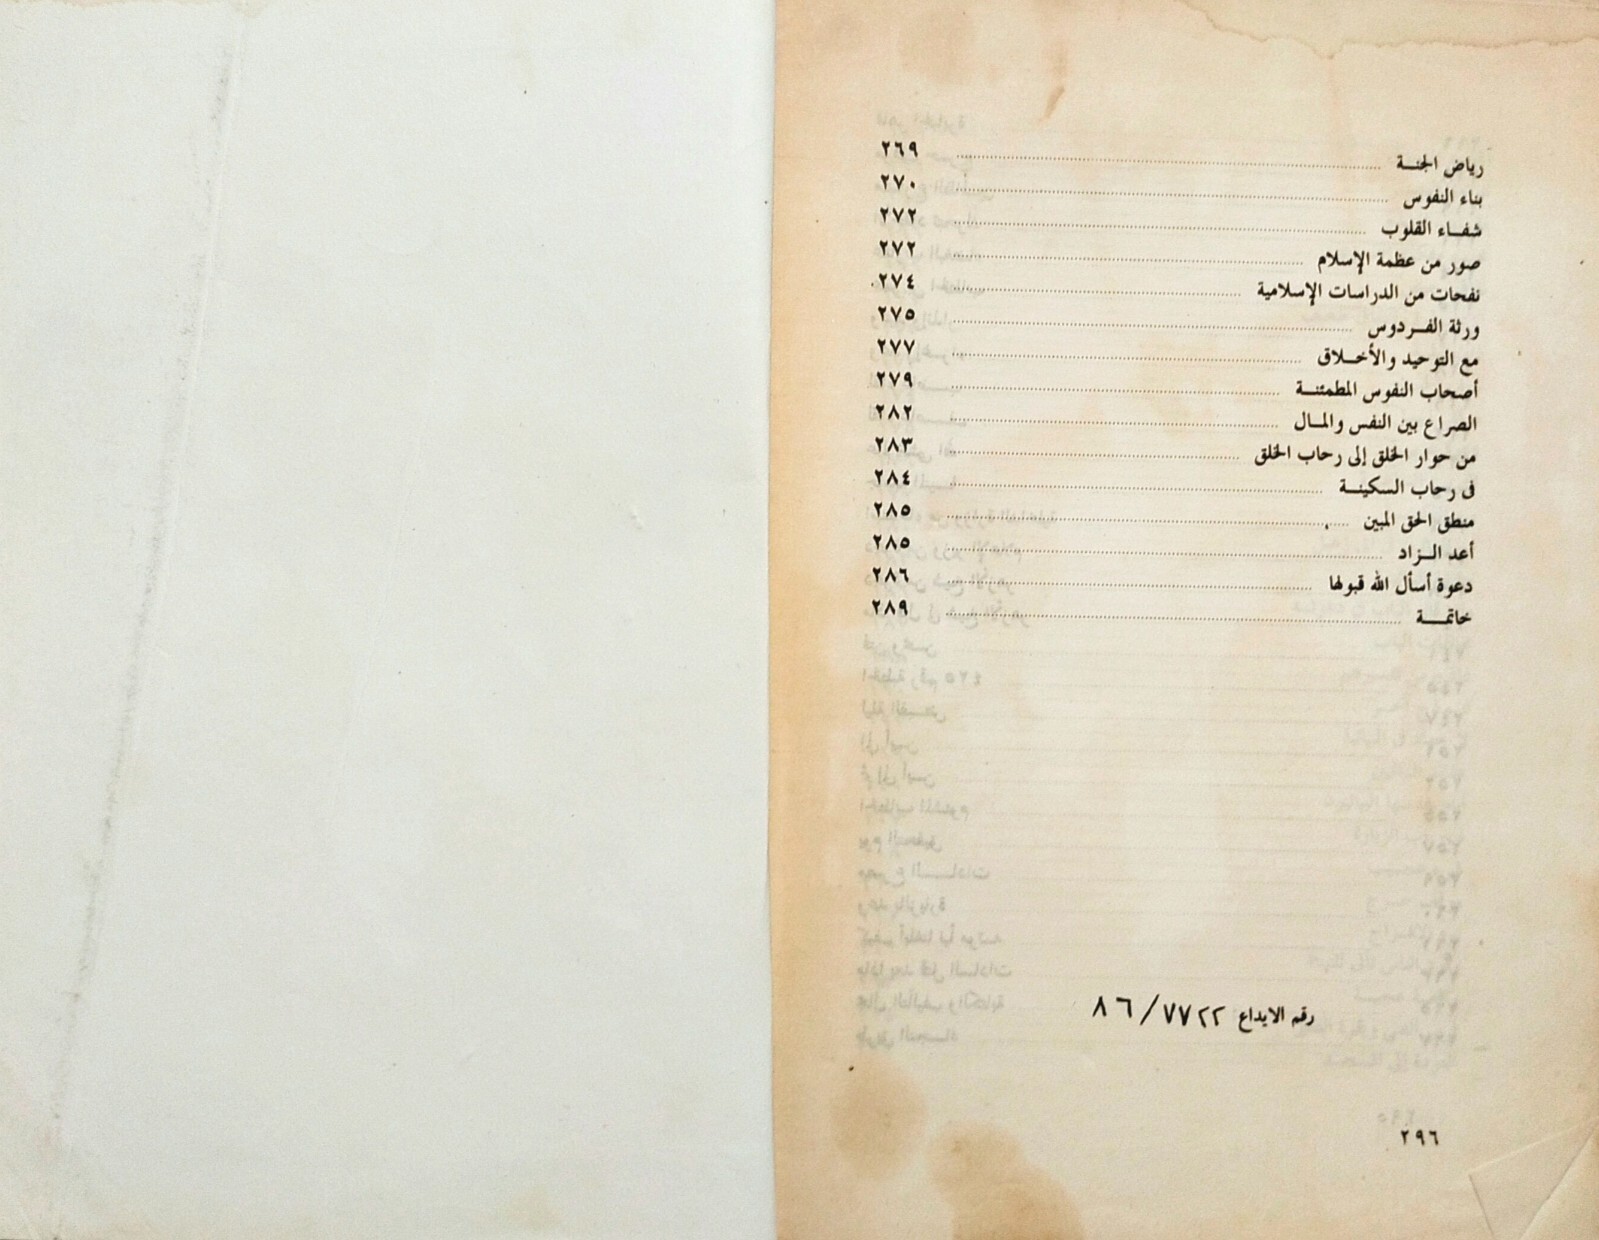 رياض الجنـــة ........ ٢٦٩
بناء النفوس ........ ٢٧٠
شفــاء القلوب ........ ٢٧٢
صور من عظمة الإسلام ........ ٢٧٢
نفحات من الدراسات الإسلامية ........ ٢٧٤
ورثة الفــردوس ........ ٢٧٥
مع التوحيد والأخــلاق ........ ٢٧٧
أصحاب النفوس المطمئنـــة ........ ٢٧٩
الصراع بين النفس والمـال ........ ٢٨٢
من حوار الخلق إلى رحاب الخلق ........ ٢٨٣
فى رحاب السكينـــة ........ ٢٨٤
منطق الحق المبين ........ ٢٨٥
أعد الــزاد ........ ٢٨٥
دعوة أسأل الله قبولها ........ ٢٨٦
خاتمـــة ........ ٢٨٩
رقم الايداع ٧٧٢٢/ ٨٦
٢٩٦